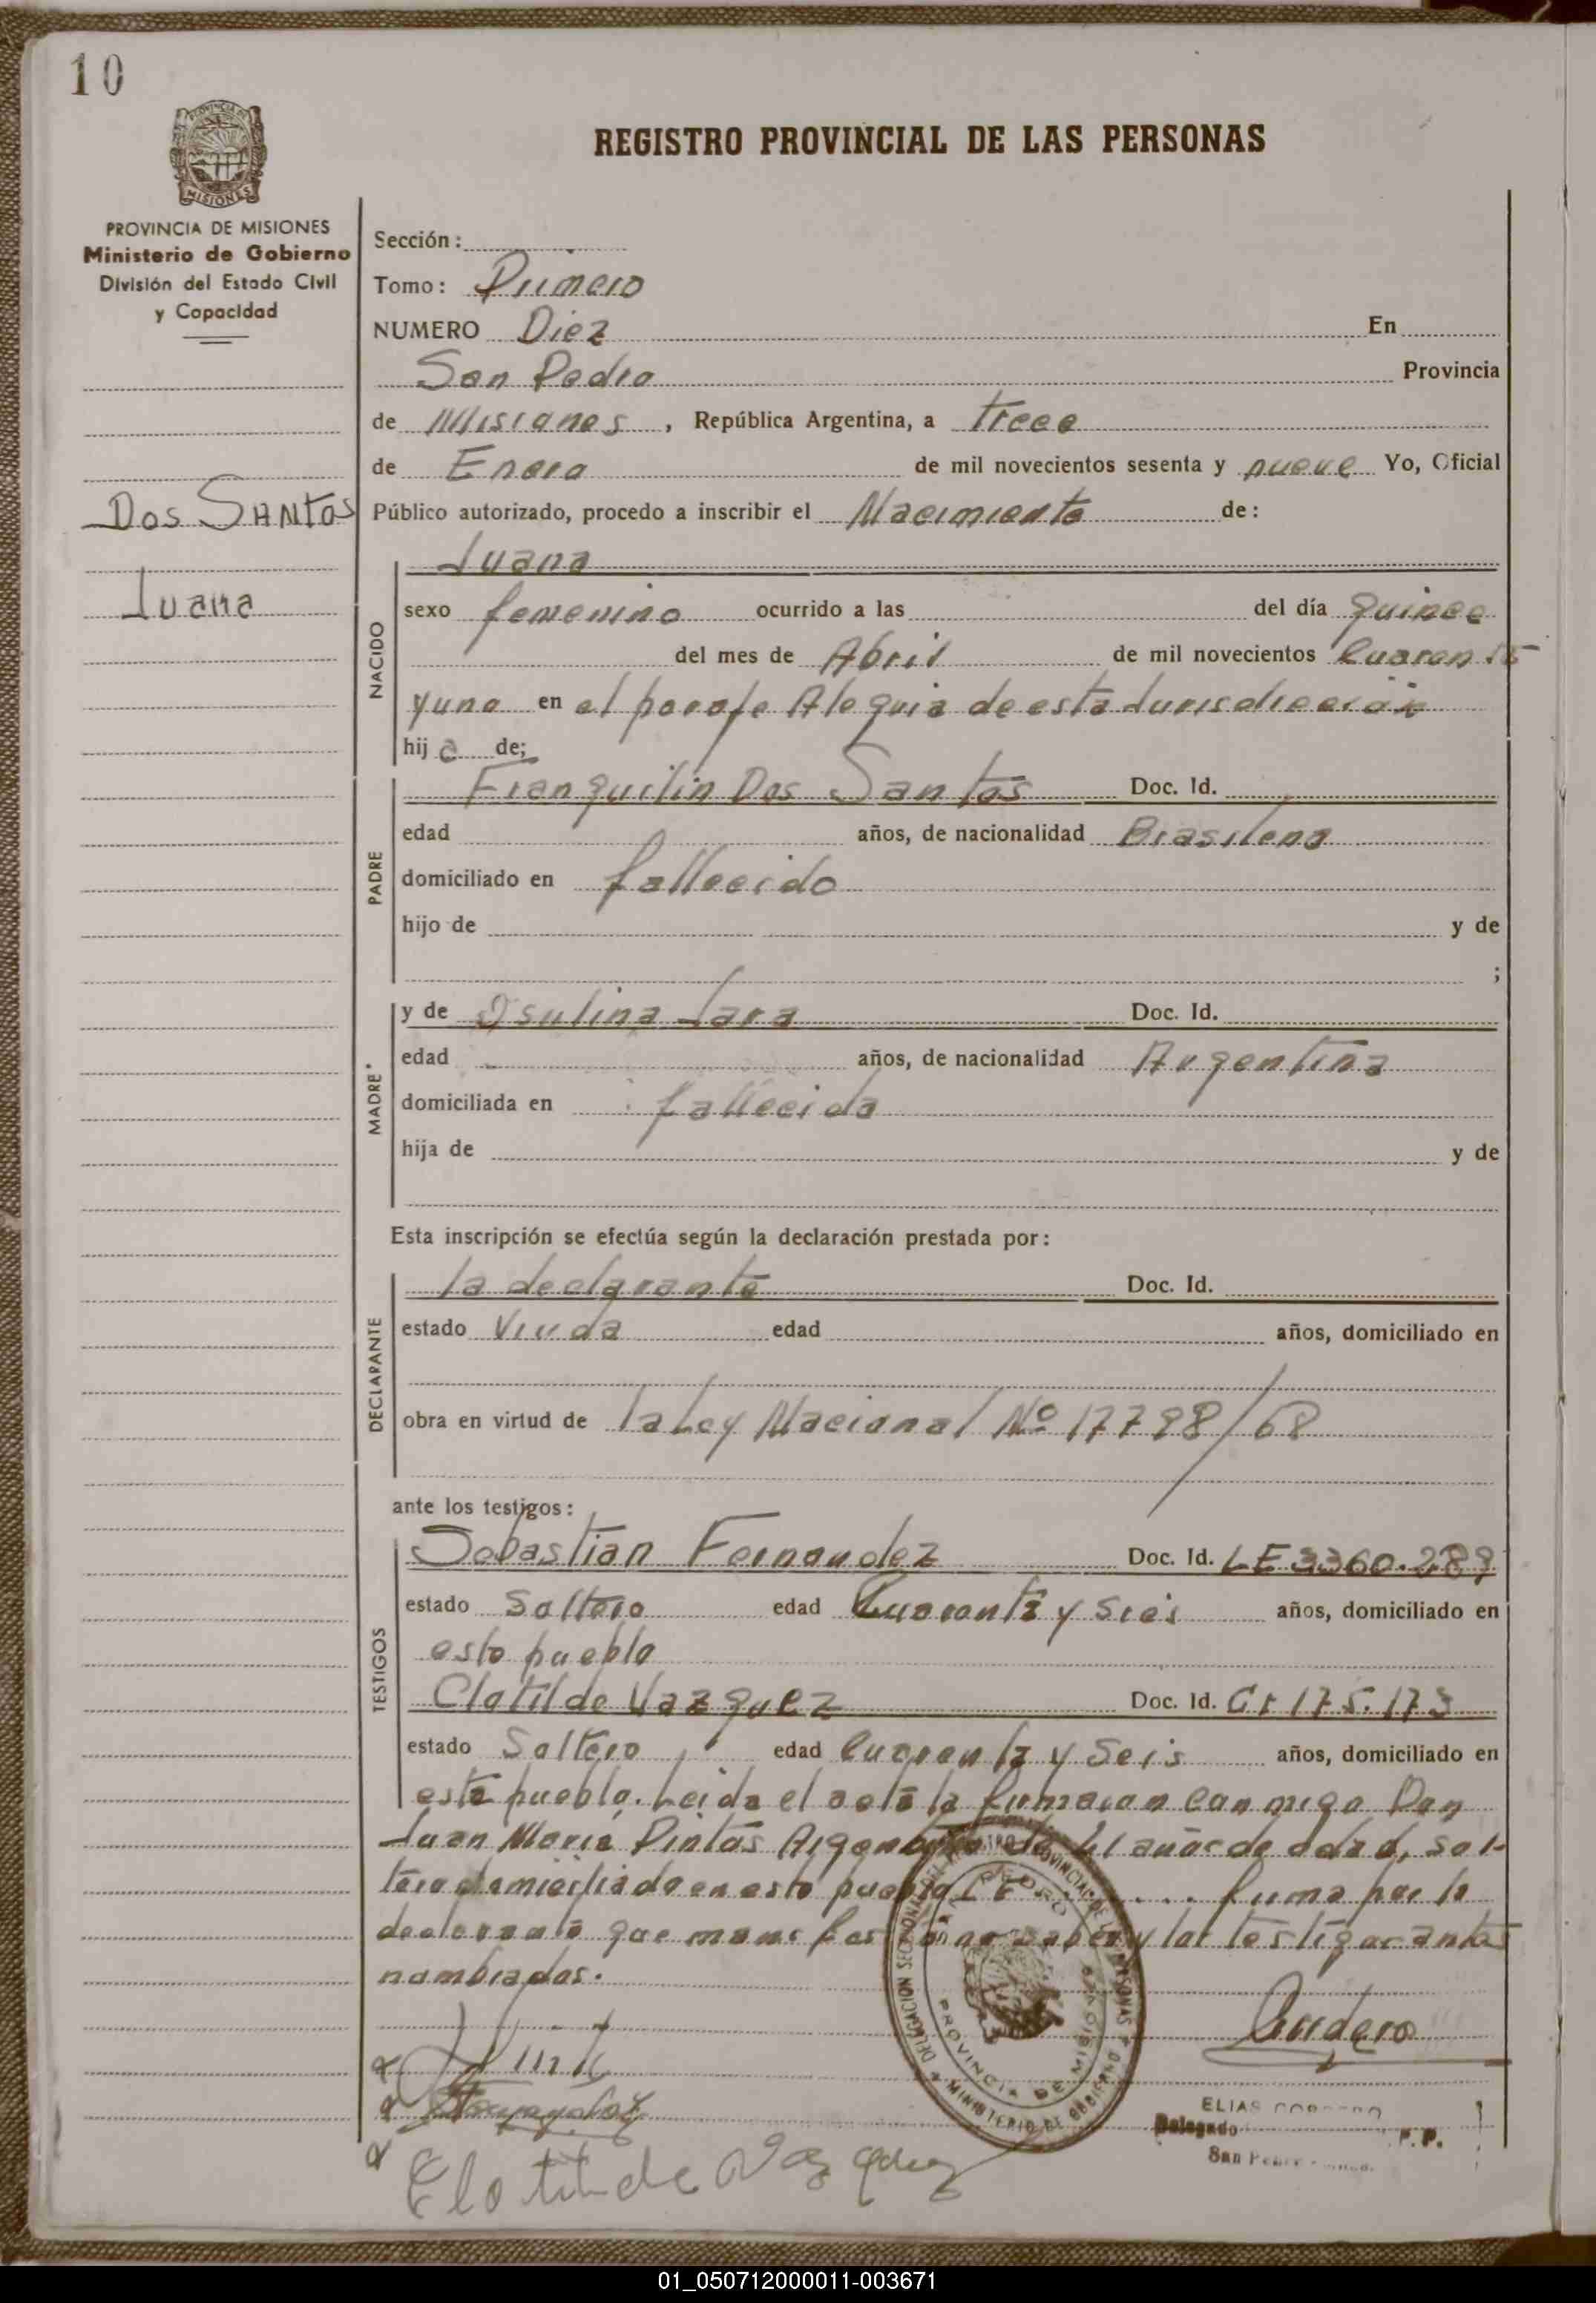 10
MISIONES
PROVINCIA DE MISIONES
Ministerio de Gobierno
División del Estado Civil
y Capacidad
Dos Santos
Juana
REGISTRO PROVINCIAL DE LAS PERSONAS
Sección:
Tomo: Primero
NUMERO Diez En
San Pedro Provincia
de Misiones, República Argentina, a trece
de Enero de mil novecientos sesenta y nueve Yo, Oficial
Público autorizado, procedo a inscribir el Nacimiento de:
Juana
NACIDO
sexo femenino ocurrido a las del día quince
del mes de Abril de mil novecientos Cuarenta
y uno en el paraje Alegria de esta Jurisdicción
hij a de;
PADRE
Franquilin Dos Santos Doc. Id.
edad años, de nacionalidad Brasilena
domiciliado en fallecido
hijo de y de
;
MADRE
y de Osulina Lara Doc. Id.
edad años, de nacionalidad Argentina
domiciliada en fallecida
hija de y de
Esta inscripción se efectúa según la declaración prestada por:
DECLARANTE
la declarante Doc. Id.
estado Viuda edad años, domiciliado en
obra en virtud de la Ley Nacional Nº 17798/68
ante los testigos:
TESTIGOS
Sebastian Fernandez Doc. Id. LE 3360.289
estado Soltero edad Cuarenta y Seis años, domiciliado en
este pueblo
Clotilde Vazquez Doc. Id. CI 175.173
estado Soltero edad Cuarenta y Seis años, domiciliado en
este pueblo. Leida el acta la firmaron conmigo Don
Juan Maria Pintos Argentino de años de edad, sol-
tero domiciliado en este pueblo firma por la
declarante que manifestó no saber y los testigos antes
nombrados.
DELEGACION SECCIONAL DEL REGISTRO PROVINCIAL DE LAS PERSONAS
MINISTERIO DE GOBIERNO
SAN PEDRO
PROVINCIA DE MISIONES
ELIAS
Delegado R. P. P.
San Pedro
Clotilde Vazquez
01_050712000011-003671